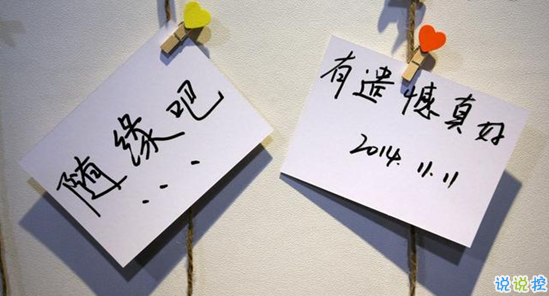 随缘吧
...
有遗憾真好
2014.11.11
说说控